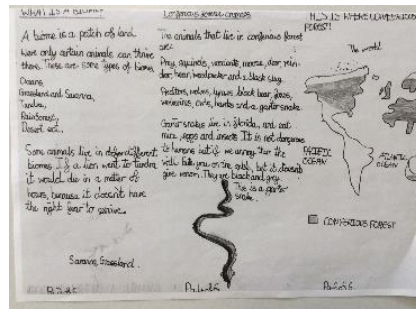 WHAT IS A BIOME?
A biome is a patch of land
Were only certain animals can thrive
there. These are some types of biomes
Oceans
Grassland and Savanna,
Tundra,
Rainforest,
Desert, ect..
Some animals live in different
biomes. If a lion went to tundra,
it would die in a matter of
hours, because it doesn't have
the right fur to survive.
Savanna, Grassland
The animals that live in coniferous forest
are:
Pray, squirrels, moose, deer, rein-
deer, woodpecker and a black slug.
wolves, lynxes, black bear,
wolverines, and a garter snake.
Garter snakes live in florida, and eat
mice, eggs and insects. It is not dangerous
to humans but if we annoy it
will bite you on the but it doesn't
give venom. They are black and grey.
This is a garter
snake.
THIS IS WHERE CONIFEROUS
FOREST!
The world
PACIFIC
OCEAN
ATLANTIC
OCEAN
CONIFEROUS FOREST